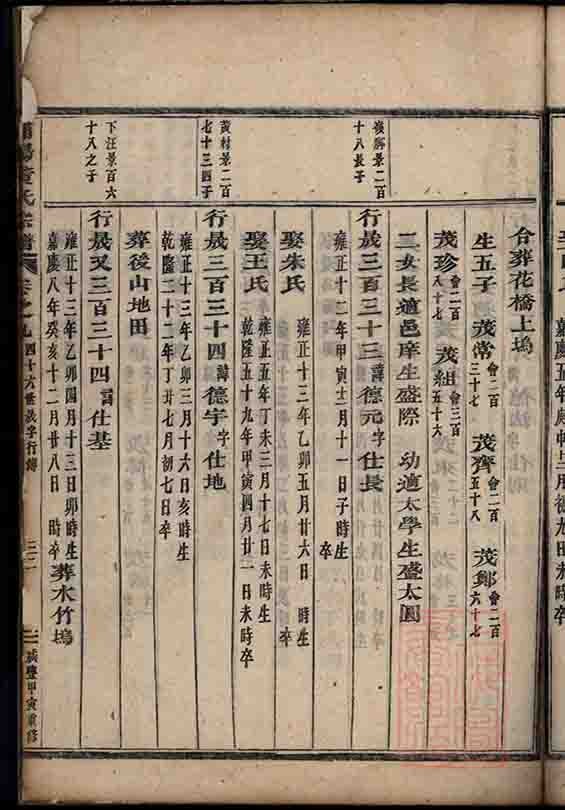 合葬花橋上塢
生五子 茂常會二百三十七 茂齊會二百五十八 茂鄭會二百六十七
茂珍會二百八十七 茂組會三百五十六
二女長適邑庠生盛際 幼適太學生盛太圓
景二百十八長子
行晟三百三十三諱德元字仕長
雍正十二年甲寅十二月十一日子時生
卒
娶朱氏 雍正十三年乙卯五月廿六日 時生
卒
娶王氏 雍正五年丁未三月十七日未時生
乾隆五十九年甲寅四月廿一日未時卒
黃村景二百七十三四子
行晟三百三十四諱德宇字仕地
雍正十三年乙卯三月十六日亥時生
乾隆二十二年丁丑七月初七日卒
葬後山地田
下汪景百六十八之子
行晟又三百三十四諱仕基
雍正十三年乙卯四月十三日卯時生
嘉慶八年癸亥十二月廿八日 時卒 葬水竹塢
氏宗譜 卷之九 四十六世晟字行傳
咸豐甲寅重修